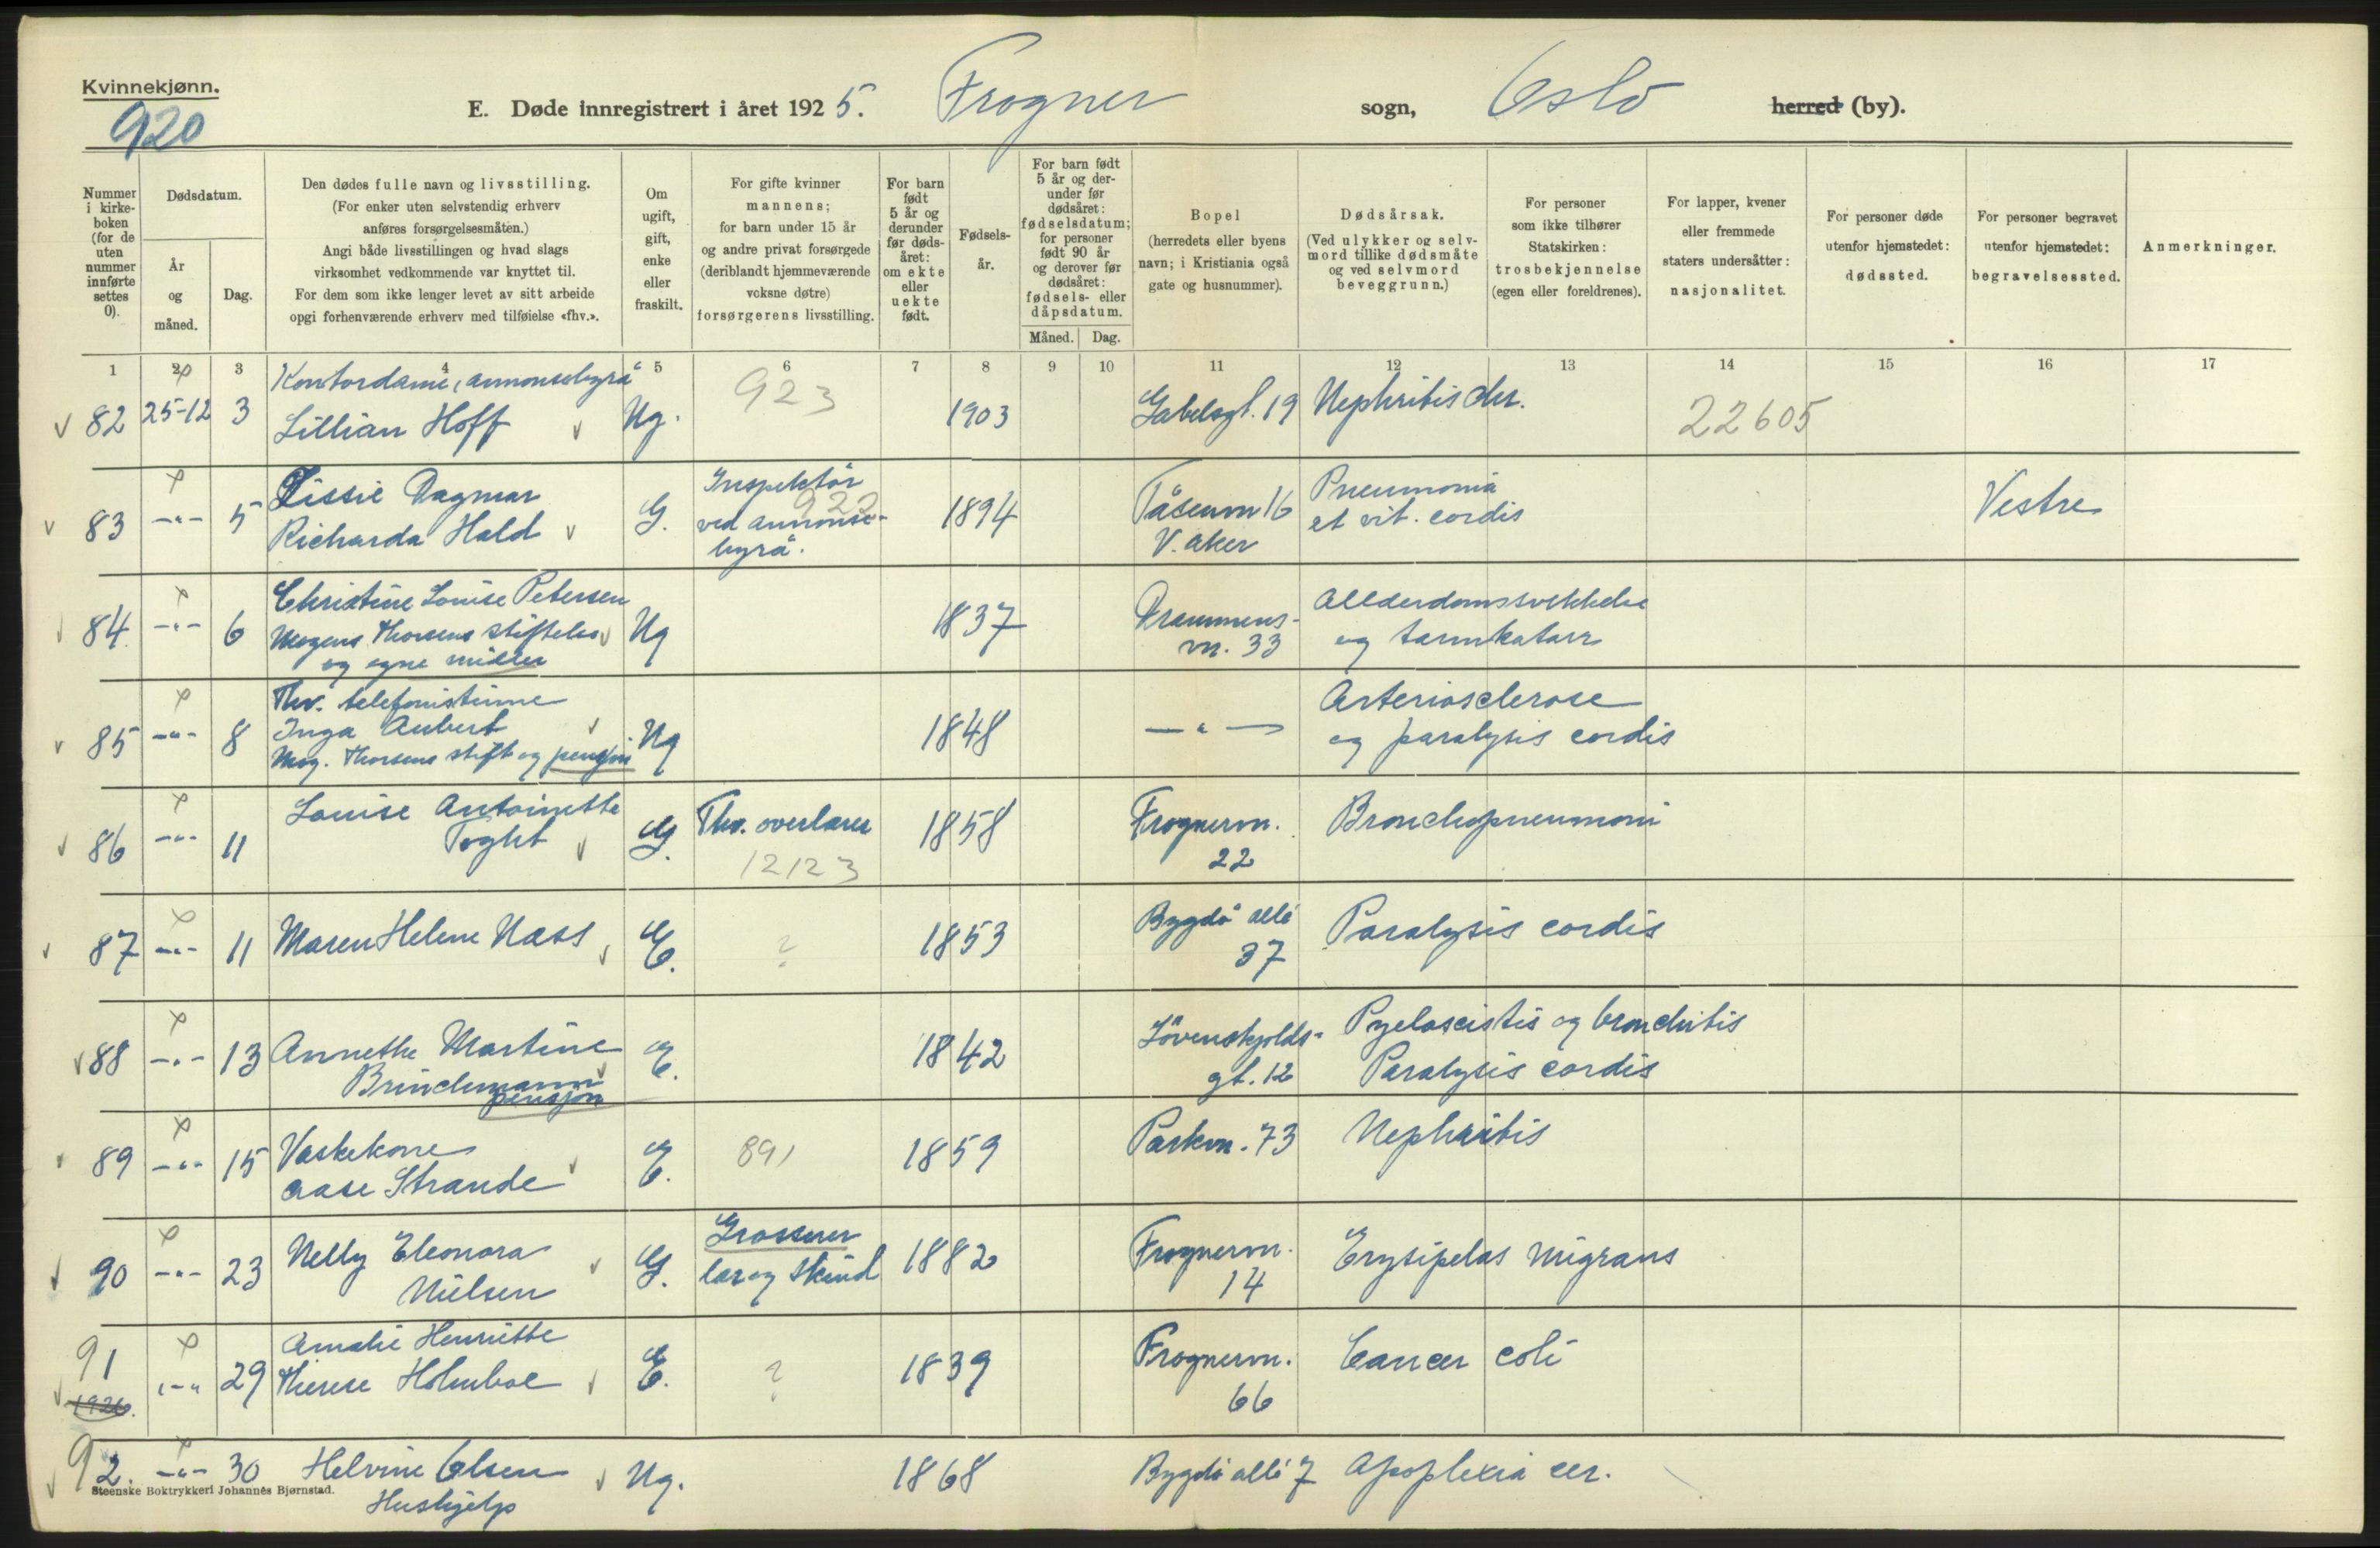 Kvinnekjønn.
920
E. Døde innregistrert i året 1925. Frogner sogn, Oslo herred (by).
Nummer i kirkeboken (for de uten nummer innførte settes 0).
Dødsdatum.
År og måned.
Dag.
Den dødes fulle navn og livsstilling.
(For enker uten selvstendig erhverv
anføres forsørgelsesmåten.)
Angi både livsstillingen og hvad slags
virksomhet vedkommende var knyttet til.
For dem som ikke lenger levet av sitt arbeide
opgi forhenværende erhverv med tilføielse «fhv.».
Om ugift, gift, enke eller fraskilt.
For gifte kvinner
mannens;
for barn under 15 år
og andre privat forsørgede
(deriblandt hjemmeværende
voksne døtre)
forsørgerens livsstilling.
For barn født 5 år og derunder før dødsåret: om ekte eller uekte født.
Fødselsår.
For barn født 5 år og derunder før dødsåret: fødselsdatum; for personer født 90 år og derover før dødsåret: fødsels- eller dåpsdatum.
Måned. Dag.
Bopel
(herredets eller byens
navn; i Kristiania også
gate og husnummer).
Dødsårsak.
(Ved ulykker og selv-
mord tillike dødsmåte
og ved selvmord
beveggrunn.)
For personer
som ikke tilhører
Statskirken:
trosbekjennelse
(egen eller foreldrenes).
For lapper, kvener
eller fremmede
staters undersåtter:
nasjonalitet.
For personer døde
utenfor hjemstedet:
dødssted.
For personer begravet
utenfor hjemstedet:
begravelsessted.
Anmerkninger.
1 2 3 4 5 6 7 8 9 10 11 12 13 14 15 16 17
Kontordame, annonsebyrå 923
82 25-12 3 Lillian Hoff Ug. 1903 Gabelsgt. 19 Nephritis chr. 22605
Lissie Dagmar Inspektør 922 Pneumonia
83 -"- 5 Richarda Hald G. ved annonse- 1894 Tåsenvn 16 et vit. cordis Vestre
byrå. V. Aker
Christine Louise Petersen Alderdomssvekkelse
84 -"- 6 Mogens Thorsens stiftelse Ug 1837 Drammens- og tarmkatarr
og egne midler vn. 33
Fhv. telefonistinne Arteriosclerose
85 -"- 8 Inga Aubert Ug 1848 -"- og paralysis cordis
Mog. Thorsens stift og pensjon
Louise Antoinette
86 -"- 11 Foght G. Fhv. overlærer 1858 Frognervn. Bronchopneumoni
12123 22
87 -"- 11 Maren Helene Næss E. ? 1853 Bygdø allé Paralysis cordis
37
88 -"- 13 Annethe Martine E. 1842 Løvenskjolds- Pyelocistis og bronchitis
Brinchmann gt. 12 Paralysis cordis
pensjon
89 -"- 15 Vaskekone E. 891 1859 Parkvn. 73 Nephritis
Aase Strande
Grosserer
90 -"- 23 Nelly Eleonora G. lær og skind 1882 Frognervn. Erysipelas migrans
Nielsen 14
91 Amalie Henriette
-"- 29 Therese Holmboe E. ? 1839 Frognervn. Cancer coli
1926. 66
92. -"- 30 Helvine Olsen Ug. 1868 Bygdø allé 7 Apoplexia cer.
Steenske Boktrykkeri Johannes Bjørnstad.
Hushjelp